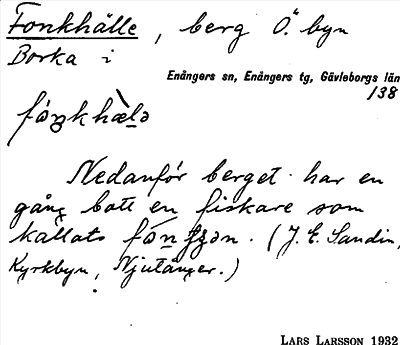 Fonkhälle, berg Ö. byn
Borka i
Enångers sn, Enångers tg, Gävleborgs län
138
Nedanför berget har en
gång bott en fiskare som
kallats
(J. E. Sandin,
Kyrkbyn, Njutånger.)
LARS LARSSON 1932